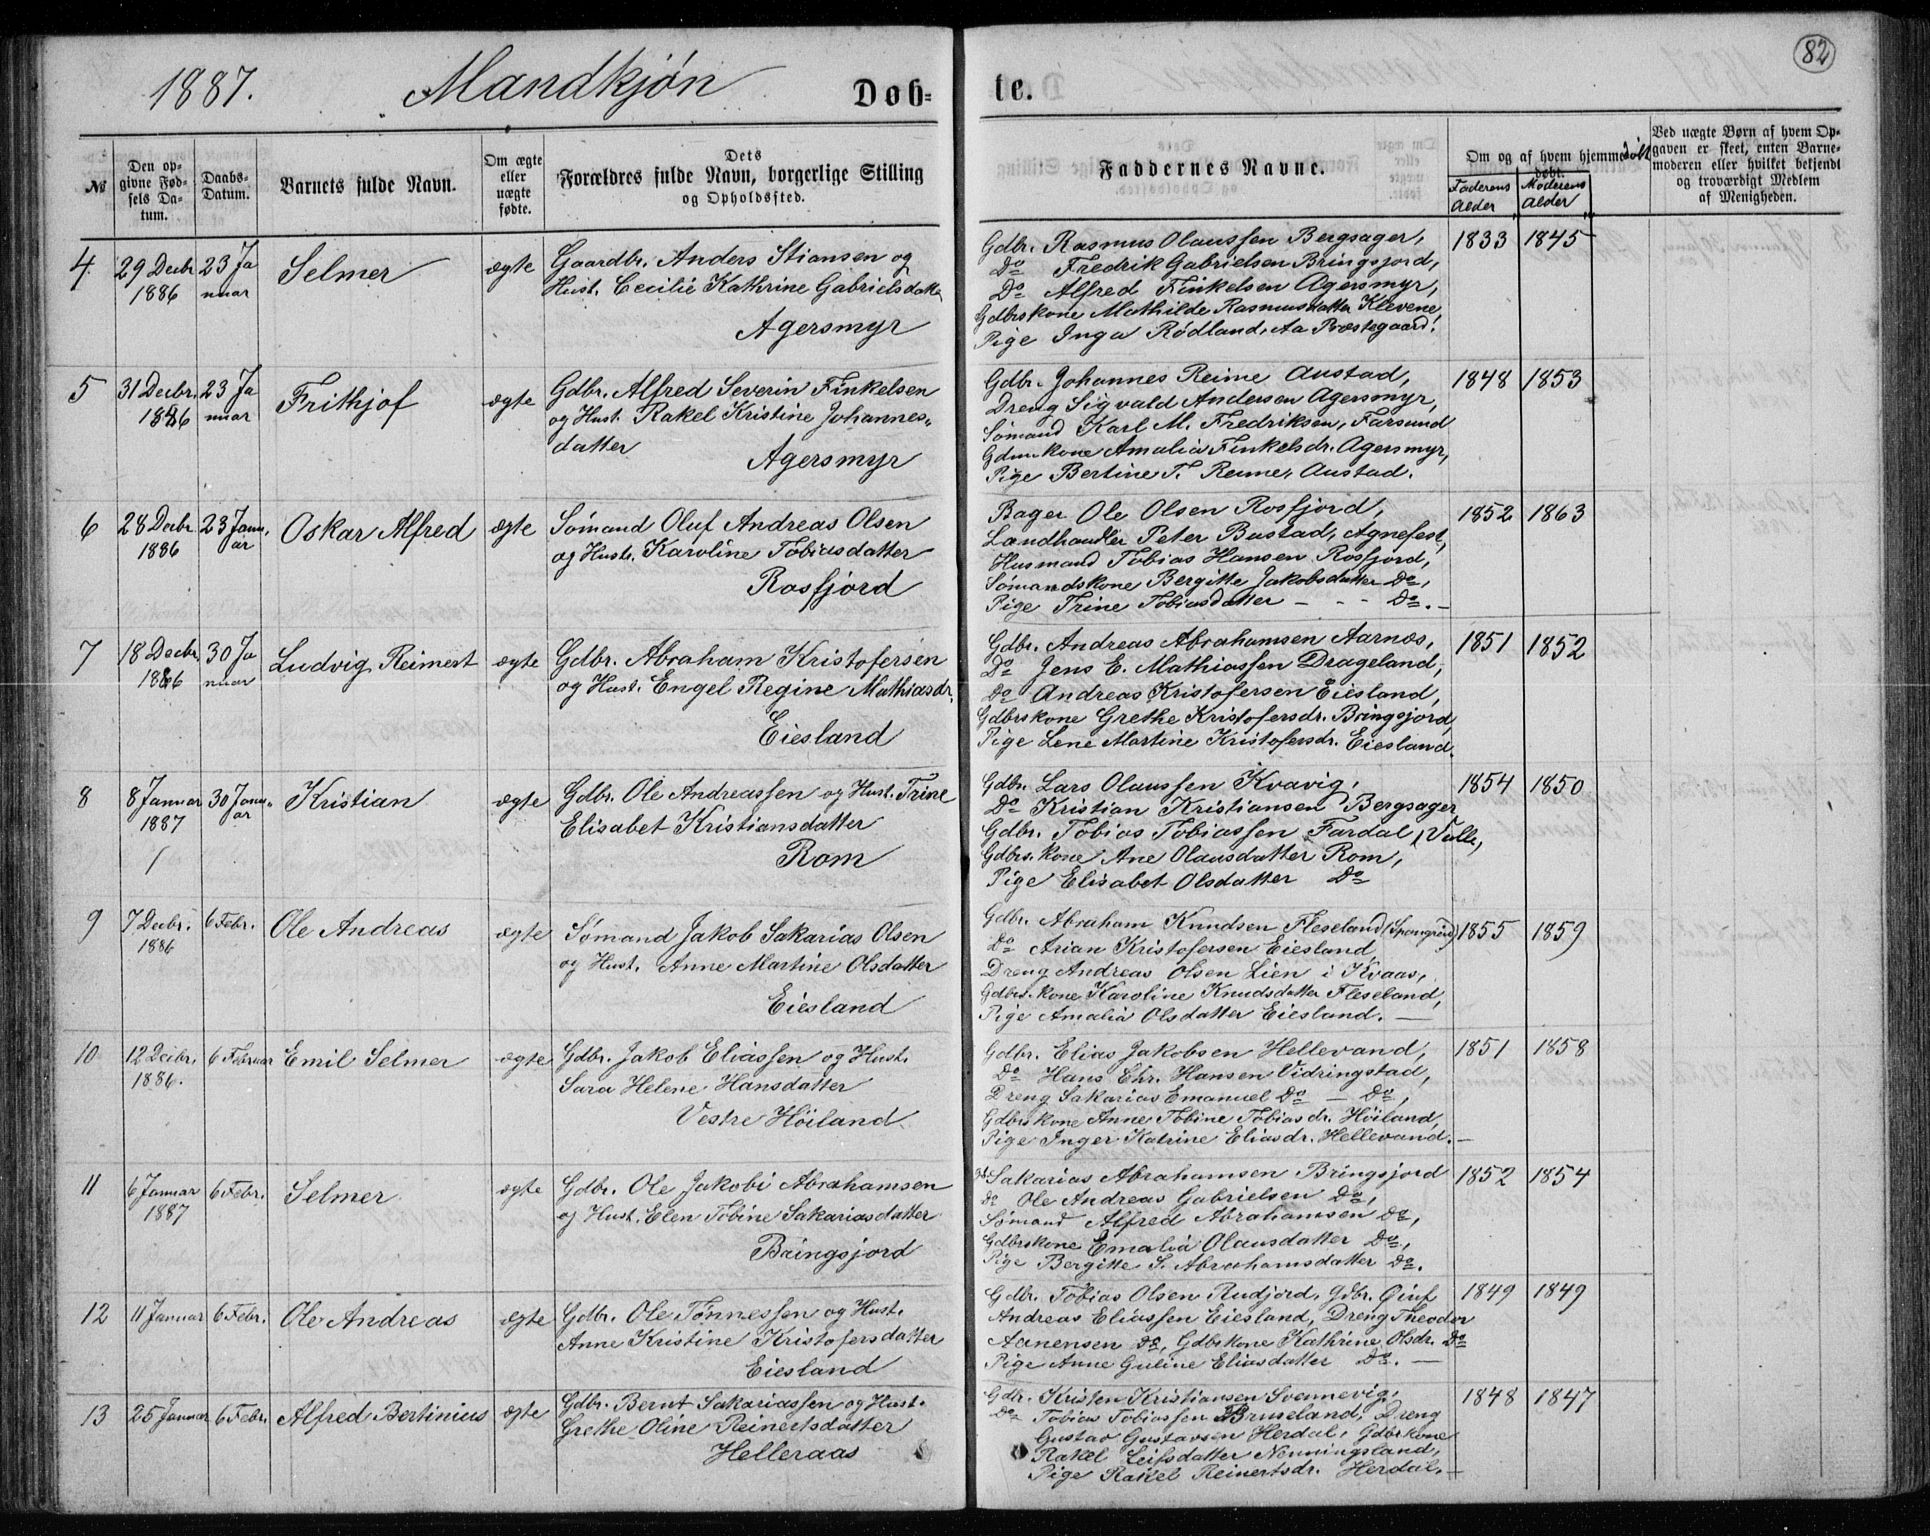 82
1887. Mandkjøn Døb= te.
№
Den op-
givne Fød-
sels Da-
tum.
Daabs-
Datum.
Barnets fulde Navn.
Om ægte
eller
uægte
fødte.
Dets
Forældres fulde Navn, borgerlige Stilling
og Opholdssted.
Faddernes Navne.
Om og af hvem hjemme-
døbt.
Faderens
Alder
Moderens
Alder
Ved uægte Børn af hvem Op-
gaven er skeet, enten Barne-
moderen eller hvilket bekjendt
og troværdigt Medlem
af Menigheden.
4. 29 Decbr 1886 23 Ja nuar Selmer ægte
Gaardbr. Anders Stiansen og
Hust. Cecilie Kathrine Gabrielsdatter
Agersmyr
Gdbr. Rasmus Olaussen Bergsager,
Do Fredrik Gabrielsen Bringsjord,
Do Alfred Finkelsen Agersmyr,
Gdbrskone Mathilde Rasmusdatter Klevene,
Pige Inga Rødland, Aa Præstegaard.
1833 1845
5 31 Decbr. 1886 23 Ja nuar Frithjof ægte
Gdbr. Alfred Severin Finkelsen
og Hust. Rakel Kristine Johannes-
datter
Agersmyr
Gdbr. Johannes Reime Austad,
Dreng Sigvald Andersen Agersmyr,
Sømand Karl M. Fredriksen, Farsund
Gdm.kone Amalia Finkelsdr. Agersmyr,
Pige Bertine T. Reime, Austad.
1848 1853
6 28 Decbr 1886 23 Janu. ar Oskar Alfred ægte
Sømand Oluf Andreas Olsen
og Hust. Karoline Tobiasdatter
Rosfjord
Bager Ole Olsen Rosfjord,
Landhandler Peter Bustad, Agnefest,
Husmand Tobias Hansen Rosfjord,
Sømandskone Bergitte Jakobsdatter Do,
Pige Trine Tobiasdatter - - - Do. -
1852 1863
7 18 Decbr 1886 30 Ja nuar Ludvig Reinert ægte
Gdbr. Abraham Kristofersen
og Hust. Engel Regine Mathiasdr.
Eiesland
Gdbr. Andreas Abrahamsen Aarnæs,
Do Jens E. Mathiassen Drageland,
Do Andreas Kristofersen Eiesland,
Gdbrskone Grethe Kristofersdr. Bringsjord,
Pige Lene Martine Kristofersdr. Eiesland.
1851 1852
8 8 Januar 1887 30 Janu- ar Kristian ægte
Gdbr. Ole Andreassen og Hust. Trine
Elisabet Kristiansdatter
Rom
Gdbr. Lars Olaussen Kvavig,
Do Kristian Kristiansen Bergsager
Gdbr. Tobias Tobiassen Fardal, Valle,
Gdbrs.kone Ane Olausdatter Rom,
Pige Elisabet Olsdatter Do
1854 1850
9 7 Decbr. 1886 6 Febr. Ole Andreas ægte
Sømand Jakob Sakarias Olsen
og Hust. Anne Martine Olsdatter
Eiesland
Gdbr. Abraham Knudsen Fleseland (Spangreid)
Do Arian Kristofersen Eiesland
Dreng Andreas Olsen Lien i Kvaas,
Gdbrs.kone Karoline Knudsdatter Fleseland,
Pige Amalia Olsdatter Eiesland. —
1855 1859
10 12 Decbr. 1886. 6 Februar Emil Selmer ægte
Gdbr. Jakob Eliassen og Hust.
Sara Helene Hansdatter
Vestre Höiland
Gdbr. Elias Jakobsen Hellevand,
Do Hans Chr. Hansen Vidringstad,
Dreng Sakarias Emanuel Do — Do,
Gdbrskone Anne Tobine Tobiasdr. Höiland,
Pige Inger Katrine Eliasdr. Hellevand. —
1851 1858
11 6 Januar 1887 6 Febr. Selmer ægte
Gdbr. Ole Jakobi Abrahamsen
og Hust. Elen Tobine Sakariasdatter
Bringsjord
Sakarias Abrahamsen Bringsjord
do Ole Andreas Gabrielsen Do,
Sømand Alfred Abrahamsen Do,
Gdbrskone Emalia Olausdatter Do,
Pige Bergitte S. Abrahamsdatter Do.
1852 1854
12 11 Januar 6 Febr. Ole Andreas ægte
Gdbr. Ole Tønnessen og Hust.
Anne Kristine Kristofersdatter
Eiesland
Gdbr. Tobias Olsen Rudjord, Gdbr.
Andreas Eliassen Eiesland, Dreng Theodor
Aanensen Do, Gdbskone Kathrine Olsdr. Do
Pige Anne Guline Eliasdatter Do. —
1849 1849
13 25 Januar 6 Febr. Alfred Bertinius ægte
Gdbr. Bernt Sakariassen og Hust.
Grethe Oline Reinertsdatter
Helleraas
Gdbr. Kristen Kristiansen Svennevig,
Do Tobias Tobiassen Bruseland, Dreng
Gustav Gustavsen Herdal, Gdbrkone
Rakel Leifsdatter Nenningsland,
Pige Rakel Reinertsdr. Herdal. —
1848 1847